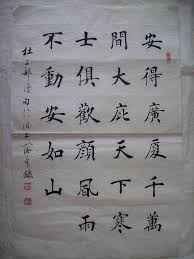 安得廣厦千萬
間大庇天下寒
士俱歡顏風雨
不動安如山
杜工部詩句